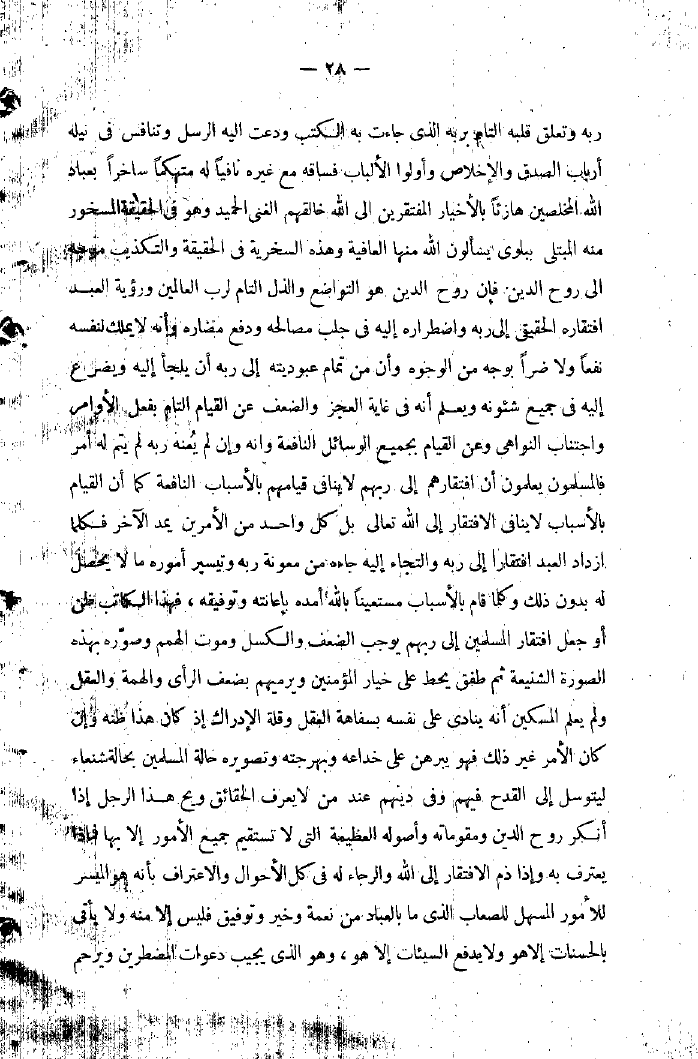 — ٢٨ —
ربه وتعلق قلبه التام بربه الذى جاءت به الكتب ودعت اليه الرسل وتنافس فى نيله
أرباب الصدق والإخلاص وأولوا الألباب فساقه مع غيره نافياً له متهكماً ساخراً بعباد
الله المخلصين هازئاً بالأخيار المفتقرين الى الله خالقهم الغنى الحميد وهو فى الحقيقة المسخور
منه المبتلى ببلوى يسألون الله منها العافية وهذه السخرية فى الحقيقة والتكذيب موجه
الى روح الدين. فإن روح الدين هو التواضع والذل التام لرب العالمين ورؤية العبد
افتقاره الحقيقى إلى ربه واضطراره إليه فى جلب مصالحه ودفع مضاره وأنه لا يملك لنفسه
نفعاً ولا ضراً بوجه من الوجوه وأن من تمام عبوديته إلى ربه أن يلجأ إليه ويضرع
إليه فى جميع شئونه ويعلم أنه فى غاية العجز والضعف عن القيام التام بفعل الأوامر
واجتناب النواهى وعن القيام بجميع الوسائل النافعة وانه وإن لم يُعنه ربه لم يتم له أمر
فالمسلمون يعلمون أن افتقارهم إلى ربهم لاينافى قيامهم بالأسباب النافعة كما أن القيام
بالأسباب لاينافى الافتقار إلى الله تعالى بل كل واحد من الأمرين يمد الآخر فكلما
ازداد العبد افتقارا إلى ربه والتجاء إليه جاءه من معونة ربه وتيسير أموره ما لا يحصل
له بدون ذلك وكلما قام بالأسباب مستعيناً بالله أمده بإعانته وتوفيقه ، فهذا الكاتب ظن
أو جعل افتقار المسلمين إلى ربهم يوجب الضعف والكسل وموت الهمم وصوّره بهذه
الصورة الشنيعة ثم طفق يحط على خيار المؤمنين ويرميهم بضعف الرأى والهمة والعقل
ولم يعلم المسكين أنه ينادى على نفسه بسفاهة العقل وقلة الإدراك إذ كان هذا ظنه وإن
كان الأمر غير ذلك فهو يبرهن على خداعه وبهرجته وتصويره حالة المسلمين بحالة شنعاء
ليتوسل إلى القدح فيهم وفى دينهم عند من لايعرف الحقائق ويح هذا الرجل إذا
أنكر روح الدين ومقوماته وأصوله العظيمة التى لا تستقيم جميع الأمور إلا بها فماذا
يعترف به وإذا ذم الافتقار إلى الله والرجاء له فى كل الأحوال والاعتراف بأنه هو الميسر
للأمور المسهل للصعاب الذى ما بالعباد من نعمة وخير وتوفيق فليس إلا منه ولا يأتى
بالحسنات إلا هو ولا يدفع السيئات إلا هو ، وهو الذى يجيب دعوات المضطرين ويرحم